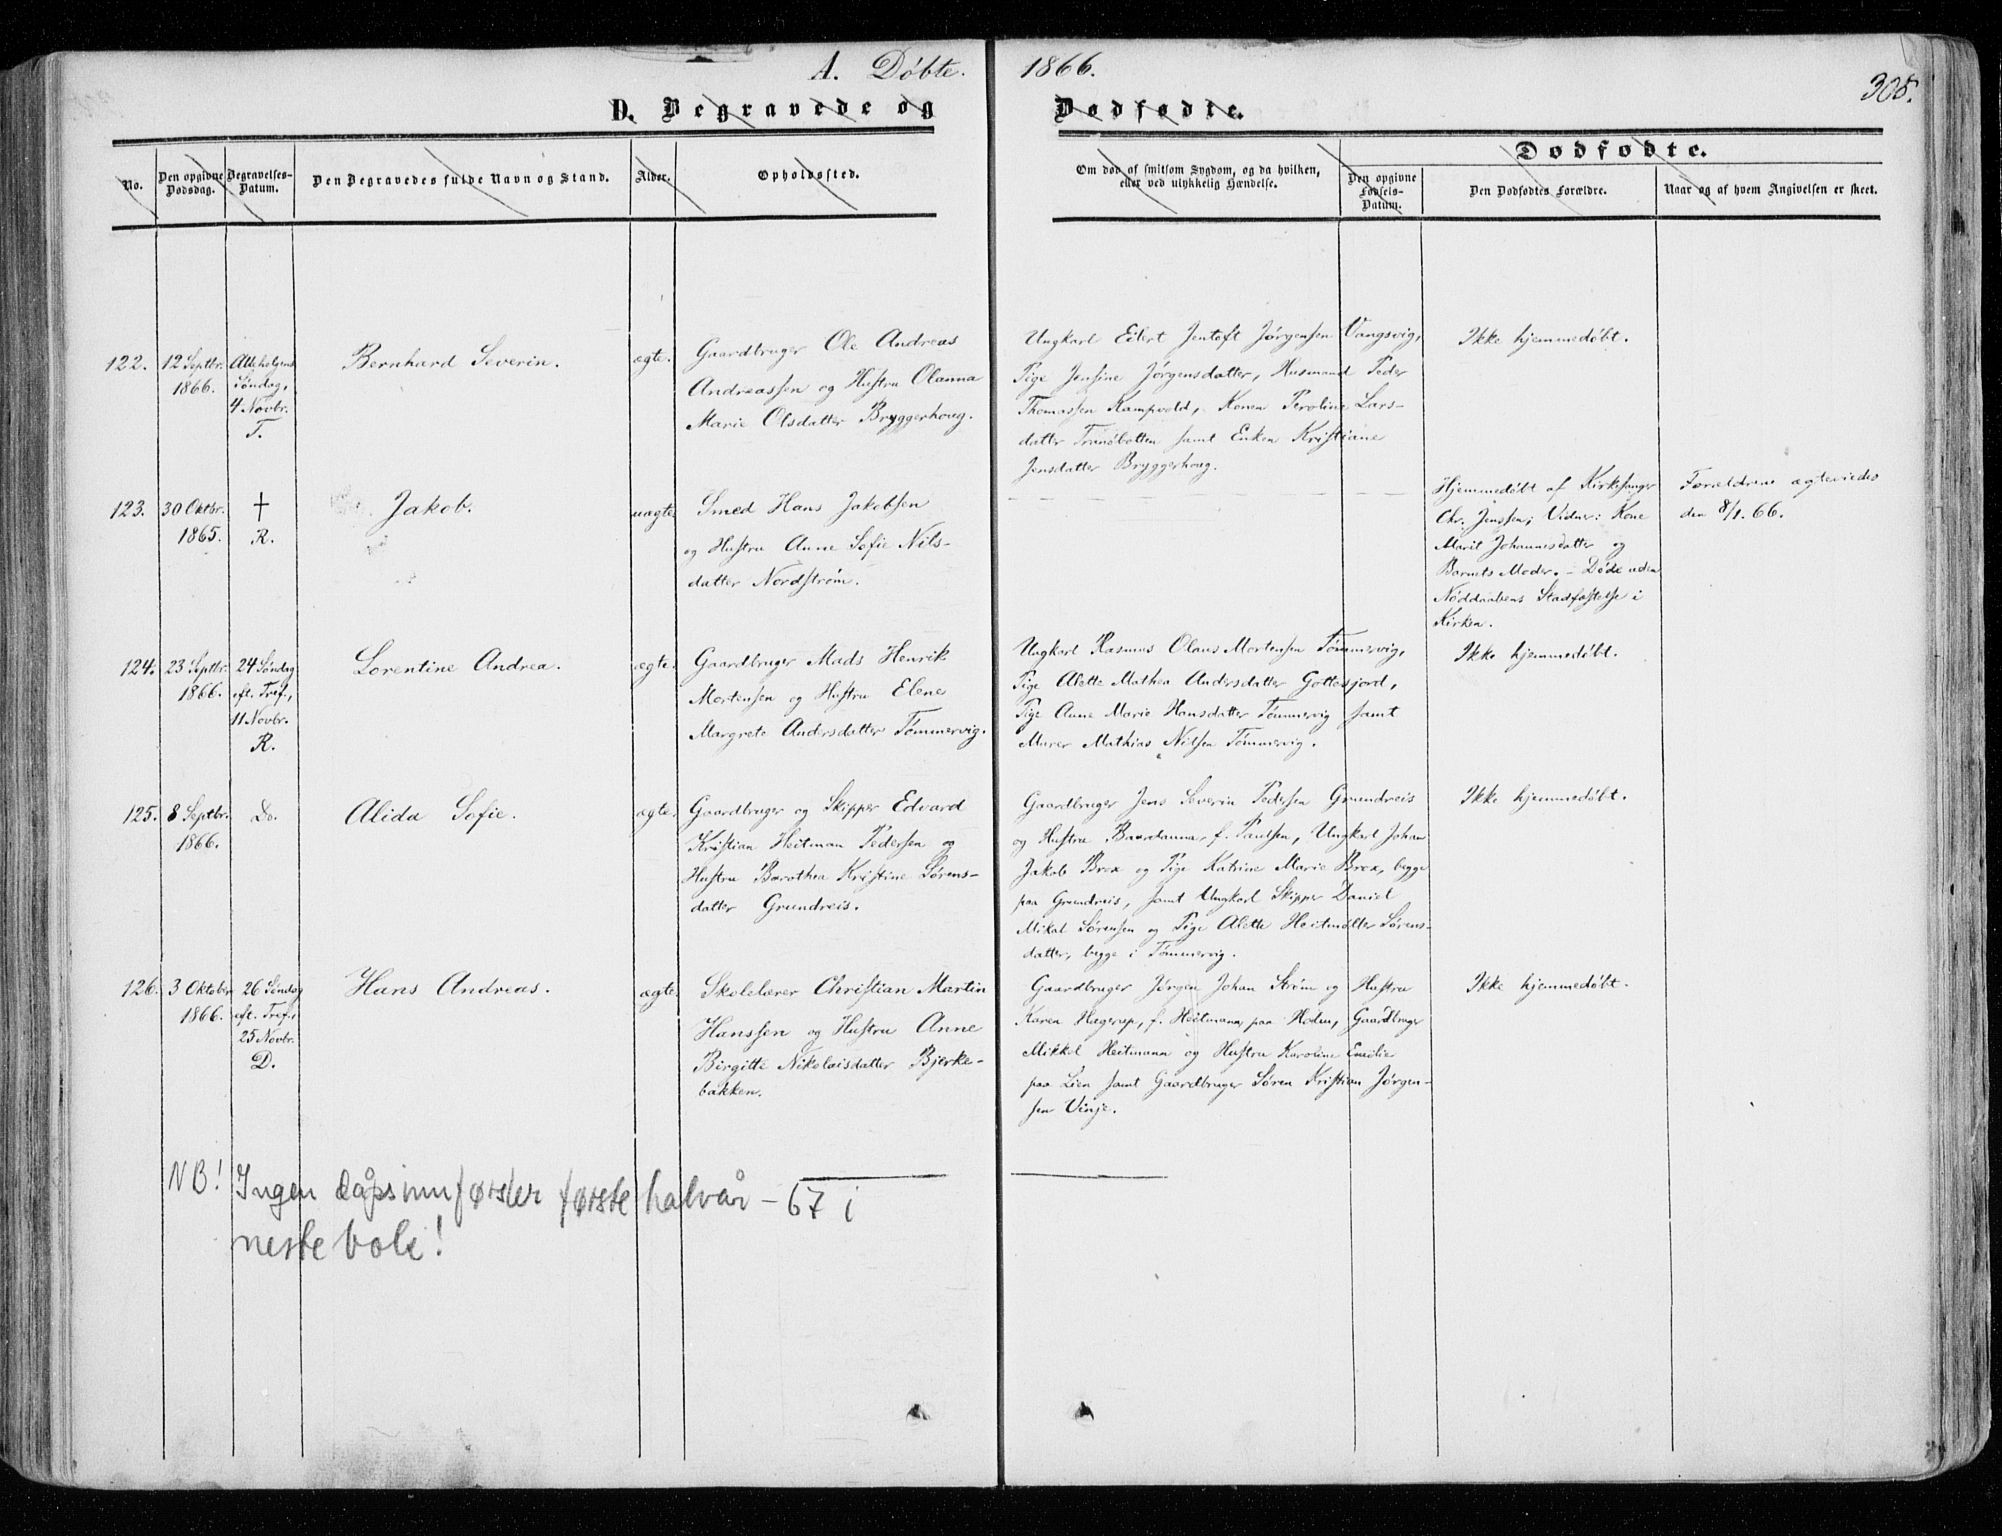 A. Døbte. 1866.
305.
D. Begravede og Dødfødte.
Dødfødte.
No.
Den opgivne Dødsdag.
Begravelses-Datum.
Den Begravedes fulde Navn og Stand.
Alder.
Opholdssted.
Om død af smitsom Sygdom, og da hvilken,
eller ved ulykkelig Hændelse.
Den opgivne Fødsels-Datum.
Den Dødfødtes Forældre.
Naar og af hvem Angivelsen er skeet.
122.
12 Septbr.
1866.
Allehelgens
Søndag,
4 Novbr.
T.
Bernhard Severin.
ægte.
Gaardbruger Ole Andreas
Andreassen og Hustru Olanna
Marie Olsdatter Bryggerhaug.
Ungkarl Edert Jentoft Jørgensen Vangsvig,
Pige Jensine Jørgensdatter, Husmand Peder
Thomassen Kampvold, Konen Peroline Lars-
datter Tranøbotten samt Enken Kristiane
Jensdatter Bryggerhaug.
Ikke hjemmedøbt.
123.
30 Oktbr.
1865.
†
R.
Jakob.
uægte
Smed Hans Jakobsen
og Hustru Anne Sofie Nils-
datter Nordstrøm.
Hjemmedøbt af Kirkesanger
Chr. Jenssen; Vidner: Kone
Marit Johannesdatter og
Barnets Moder. – Døde uden
Nøddaabens Stadfæstelse i
Kirken.
Forældrene ægteviedes
den 8/1. 66.
124.
23 Septbr.
1866.
24 Søndag
eft. Tref.,
11 Novbr.
R.
Lorentine Andrea.
ægte.
Gaardbruger Mads Henrik
Mortensen og Hustru Elene
Margrete Andersdatter Tømmervig.
Ungkarl Rasmus Olaus Mortensen Tømmervig,
Pige Alette Mathea Andersdatter Gottesjord,
Pige Anne Marie Hansdatter Tømmervig samt
Murer Mathias Nilsen Tømmervig.
Ikke hjemmedøbt.
125.
8 Septbr.
1866.
Do.
Alida Sofie.
ægte.
Gaardbruger og Skipper Edvard
Kristian Heitman Pedersen og
Hustru Barothea Kristine Sørens-
datter Grundreis.
Gaardbruger Jens Severin Pedersen Grundreis
og Hustru Baardanna, f. Paulsen, Ungkarl Johan
Jakob Brox og Pige Katrine Marie Brox, begge
paa Grundreis, samt Ungkarl Skipper Daniel
Mikal Sørensen og Pige Alette Heitmølter Sørens-
datter, begge i Tømmervig.
Ikke hjemmedøbt.
126.
3 Oktober
1866.
26 Søndag
eft. Tref.,
25 Novbr.
D.
Hans Andreas.
ægte.
Skolelærer Christian Martin
Hanssen og Hustru Anne
Birgitte Nikolaisdatter Bjerke-
bakken.
Gaardbruger Jørgen Johan Strøm og Hustru
Karen Hagerup, f. Heitmann, paa Moen, Gaardbruger
Mikkel Heitmann og Hustru Karoline Emilie
paa Lien samt Gaardbruger Søren Kristian Jørgen-
sen Vinje.
Ikke hjemmedøbt.
NB! Ingen dåpsinnførsler første halvår – 67 i
neste bok!